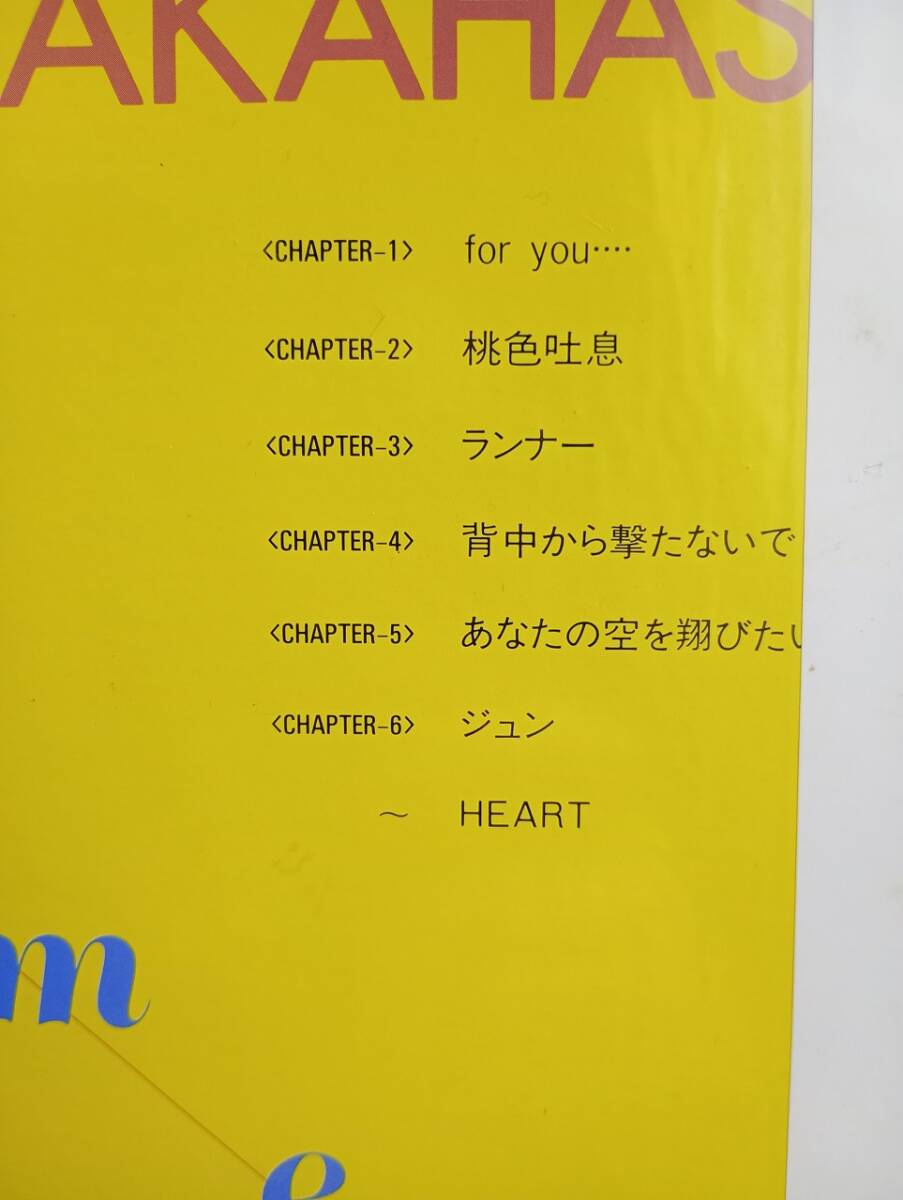 AKAHAS
<CHAPTER-1> for you‥‥
<CHAPTER-2> 桃色吐息
<CHAPTER-3> ランナー
<CHAPTER-4> 背中から撃たないで
<CHAPTER-5> あなたの空を翔びたい
<CHAPTER-6> ジュン
～ HEART
m
e